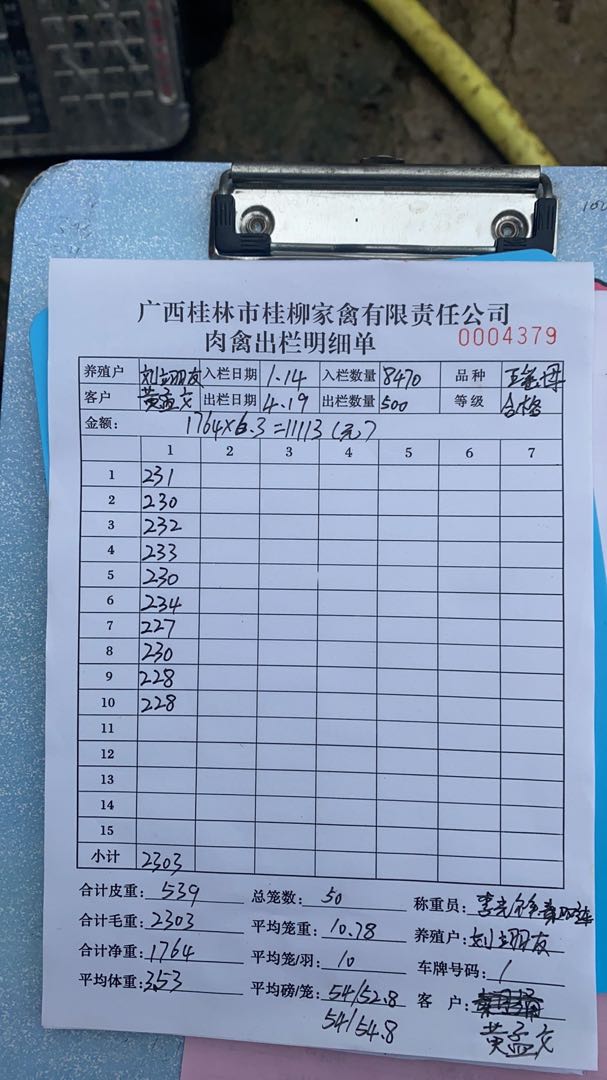 广西桂林市桂柳家禽有限责任公司
肉禽出栏明细单 0004379
养殖户 刘翊友 入栏日期 1.14 入栏数量 8470 品种
客户 黄孟文 出栏日期 4.19 出栏数量 500 等级 合格
金额: 1764×6.3=11113(元)
1 2 3 4 5 6 7
1 231
2 230
3 232
4 233
5 230
6 234
7 227
8 230
9 228
10 228
11
12
13
14
15
小计 2303
合计皮重: 539 总笼数: 50 称重员:
合计毛重: 2303 平均笼重: 10.78 养殖户: 刘翊友
合计净重: 1764 平均笼/羽: 10 车牌号码: 1
平均体重: 3.53 平均磅/笼: 54/52.8 客户:
54/54.8 黄孟文